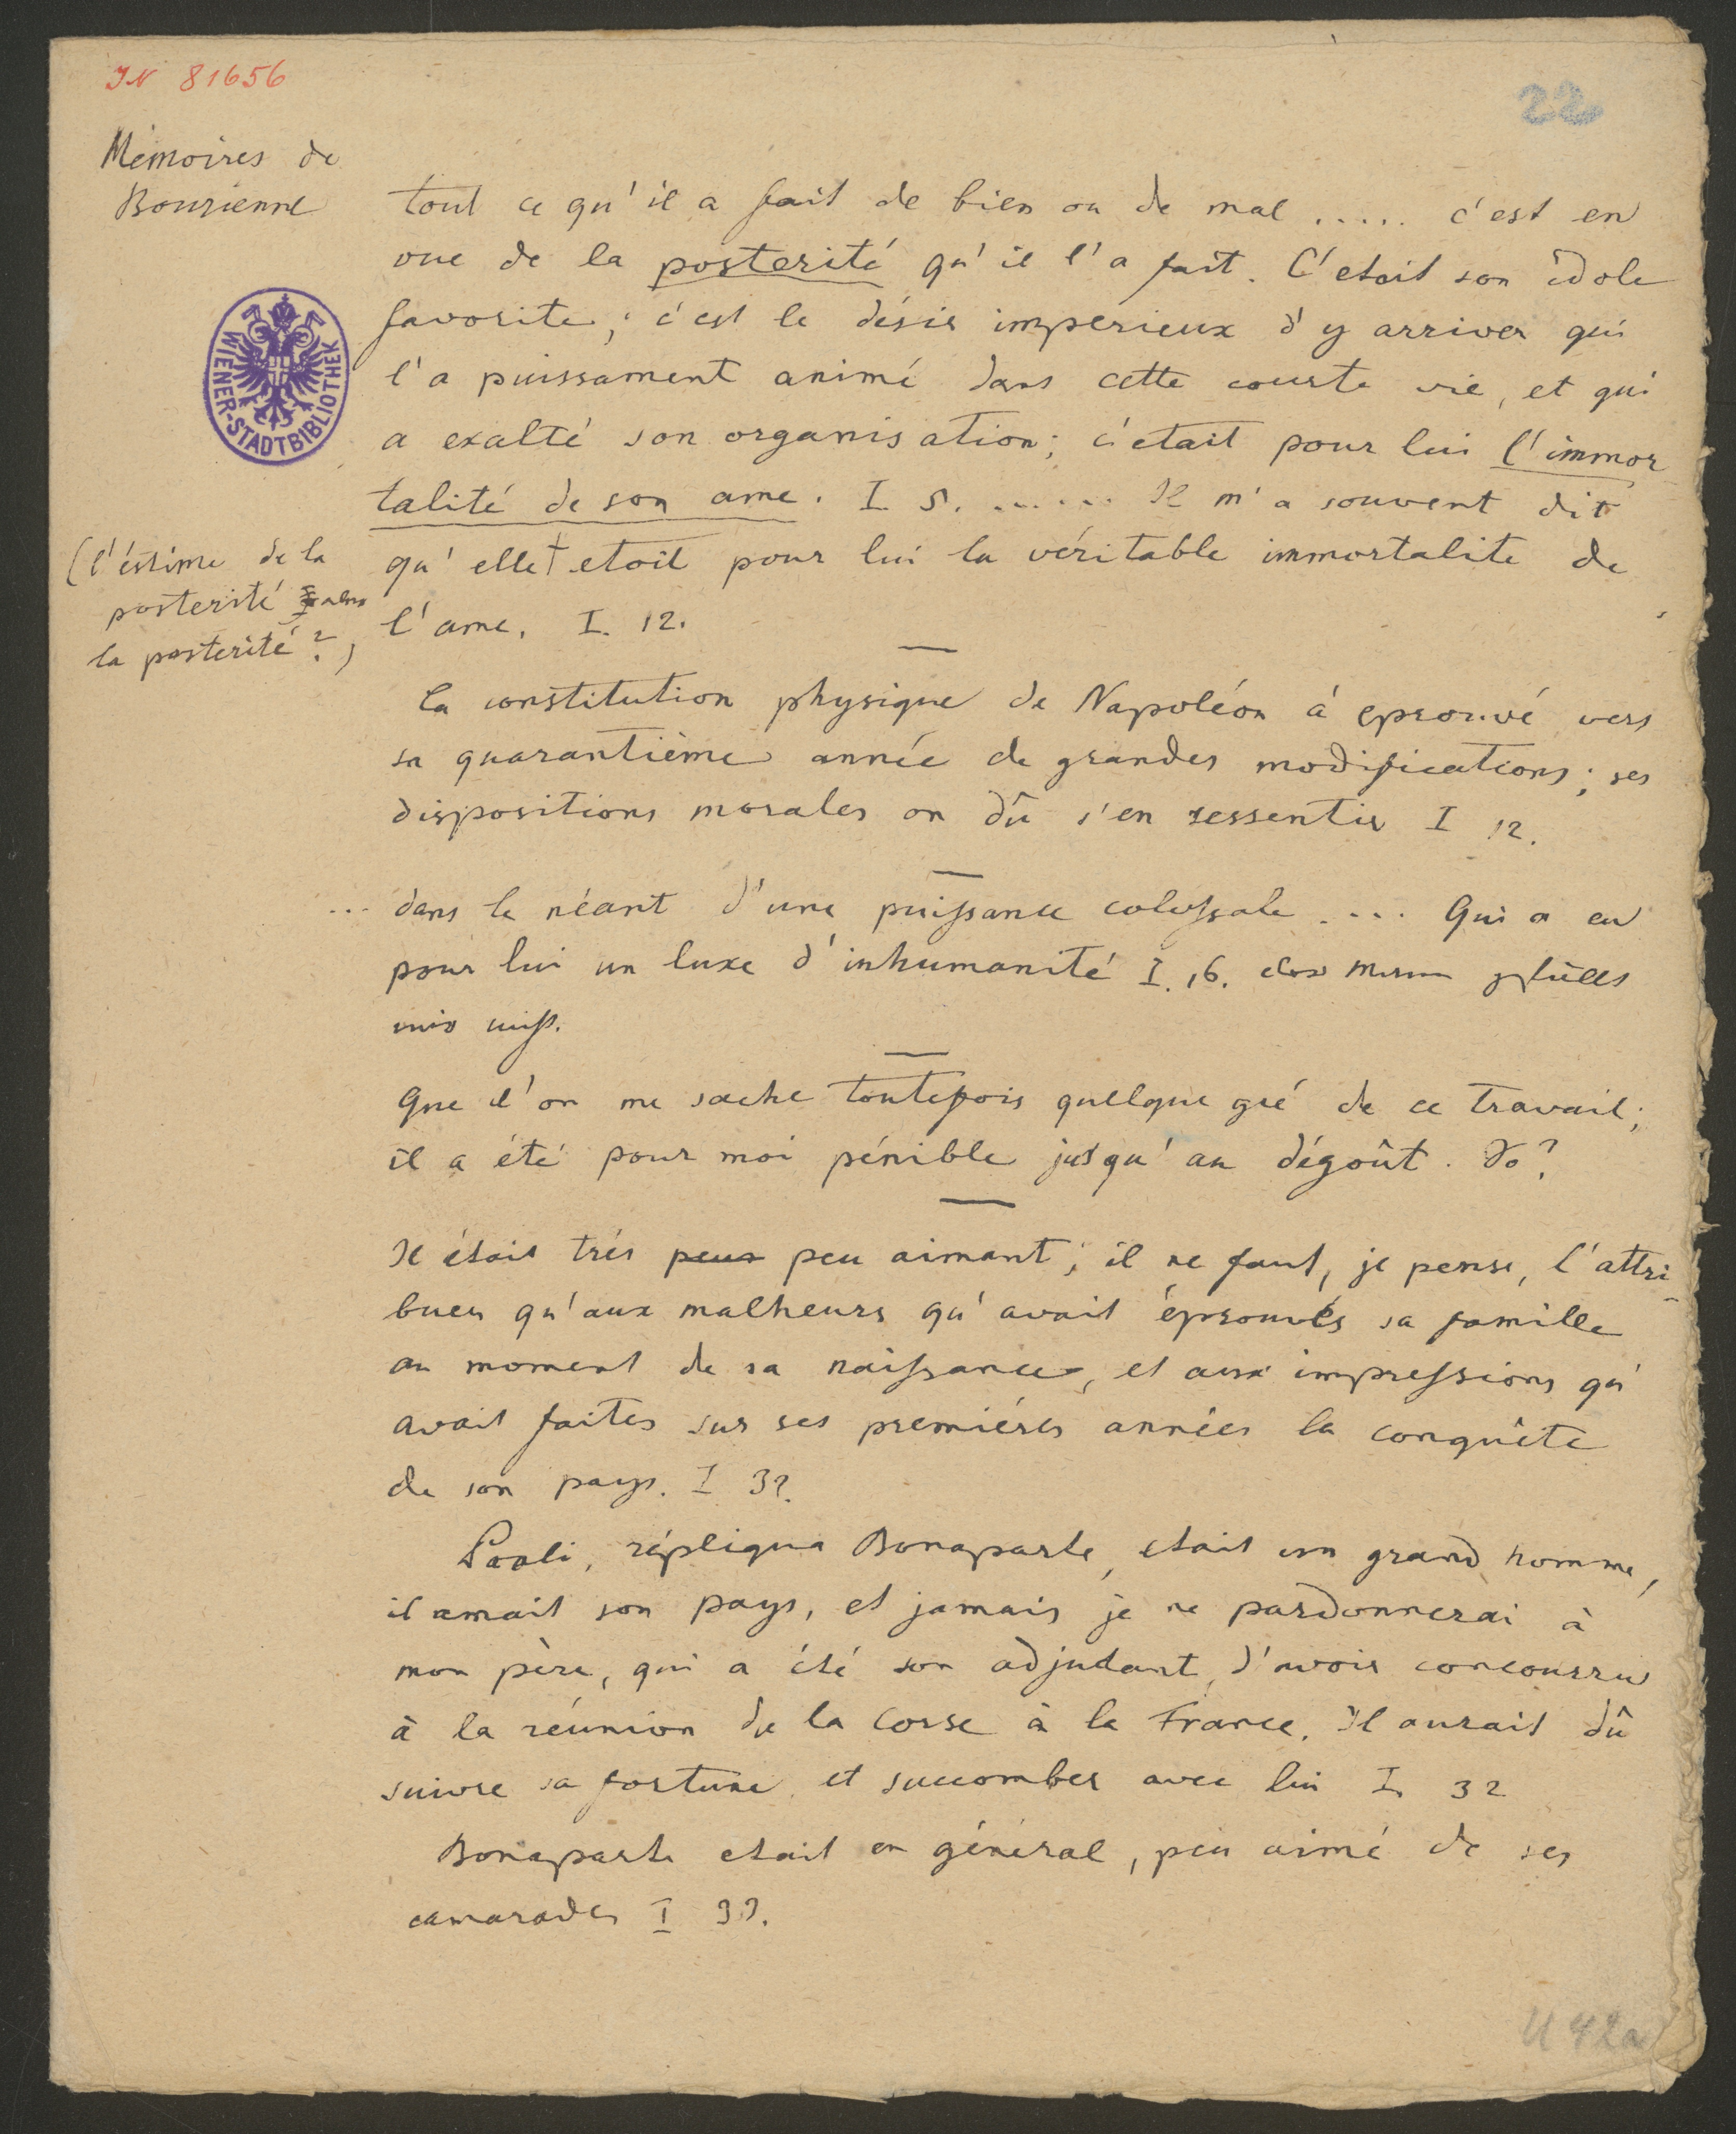 IN 81656
22
Mémoires de
Bourienne
tout ce qu'il a fait de bien ou de mal ..... c'est en
vue de la posterité qu'il l'a fait. C'etait son idole
favorite; c'est le désir imperieux d'y arriver qui
l'a puissament animé dans cette courte vie, et qui
a exalté son organisation; c'etait pour lui l'immor
talité de son ame. I. 5. ...... Il m'a souvent dit
qu'elle† etoit pour lui la véritable immortalite de
l'ame. I. 12.
(l'éstime de la
posterité
la posterité?)
WIENER-STADTBIBLIOTHEK
la constitution physique de Napoléon á eprouvé vers
sa quarantième année de grandes modifications; ses
dispositions morales on dû s'en ressentir I 12.
... dans le néant d'une puissance colossale .... Qui a eu
pour lui un luxe d'inhumanité I. 16.
Que l'on me sache toutefois quelque gré de ce travail;
il a été pour moi pénible jusqu'au dégoût. So?
Il était trés peux peu aimant; il ne faut, je pense, l'attri-
buer qu'aux malheurs qu'avait éprouvés sa famille
au moment de sa naissance, et aux impressions qu'
avait faites sur ses premiéres années la conquête
de son pays. I 32.
Paoli, répliqua Bonaparte, etait un grand homme,
il amait son pays, et jamais je ne pardonnerai à
mon père, qui a été son adjudant, d'avoir concourru
à la réunion de la Corse à la France. Il aurait dû
suivre sa fortune et succomber avec lui I. 32
Bonaparte etait en général, peu aimé de ses
camarades I 33.
U 42a